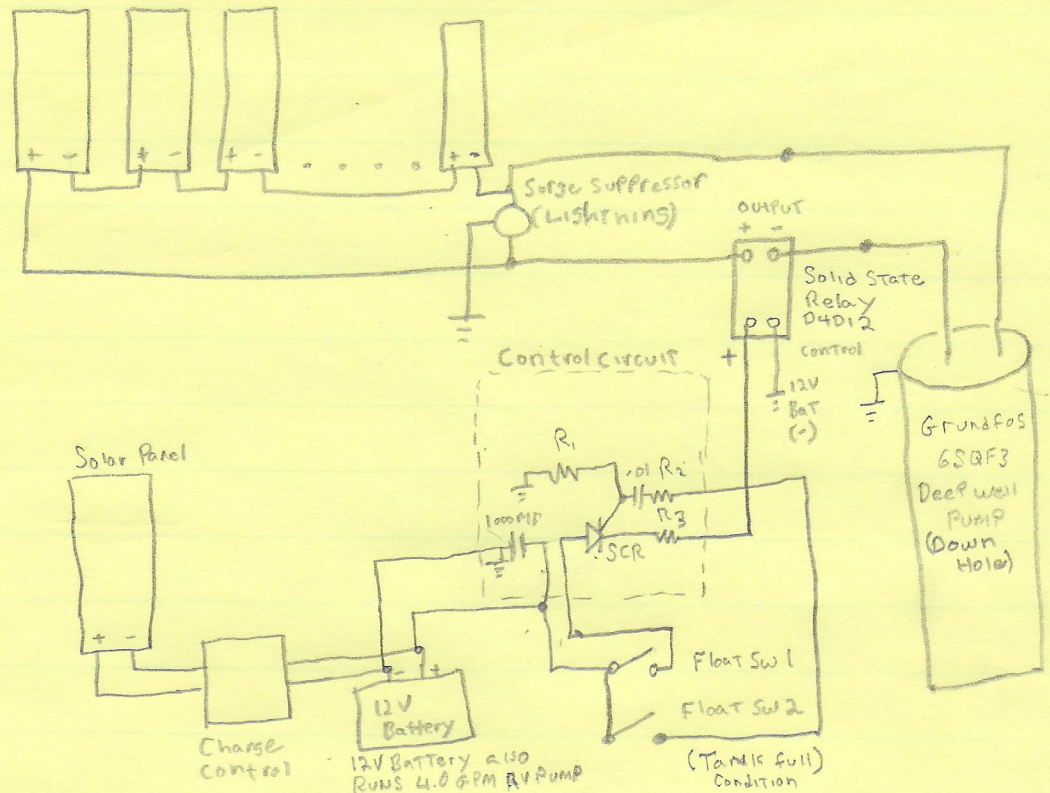 + -
+ -
+ -
+ -
Surge Suppressor
(Lightning)
OUTPUT
+ -
Solid State
Relay
D4D12
Control
+
12V
Bat
(-)
Control Circuit
R1
.01 R2
R3
1000MF
SCR
Grundfos
6SQF3
Deep well
PUMP
(Down
Hole)
Solar Panel
+ -
Charge
Control
- +
12V
Battery
12V Battery also
RUNS 4.0 GPM RV PUMP
Float SW 1
Float SW 2
(Tank full)
Condition